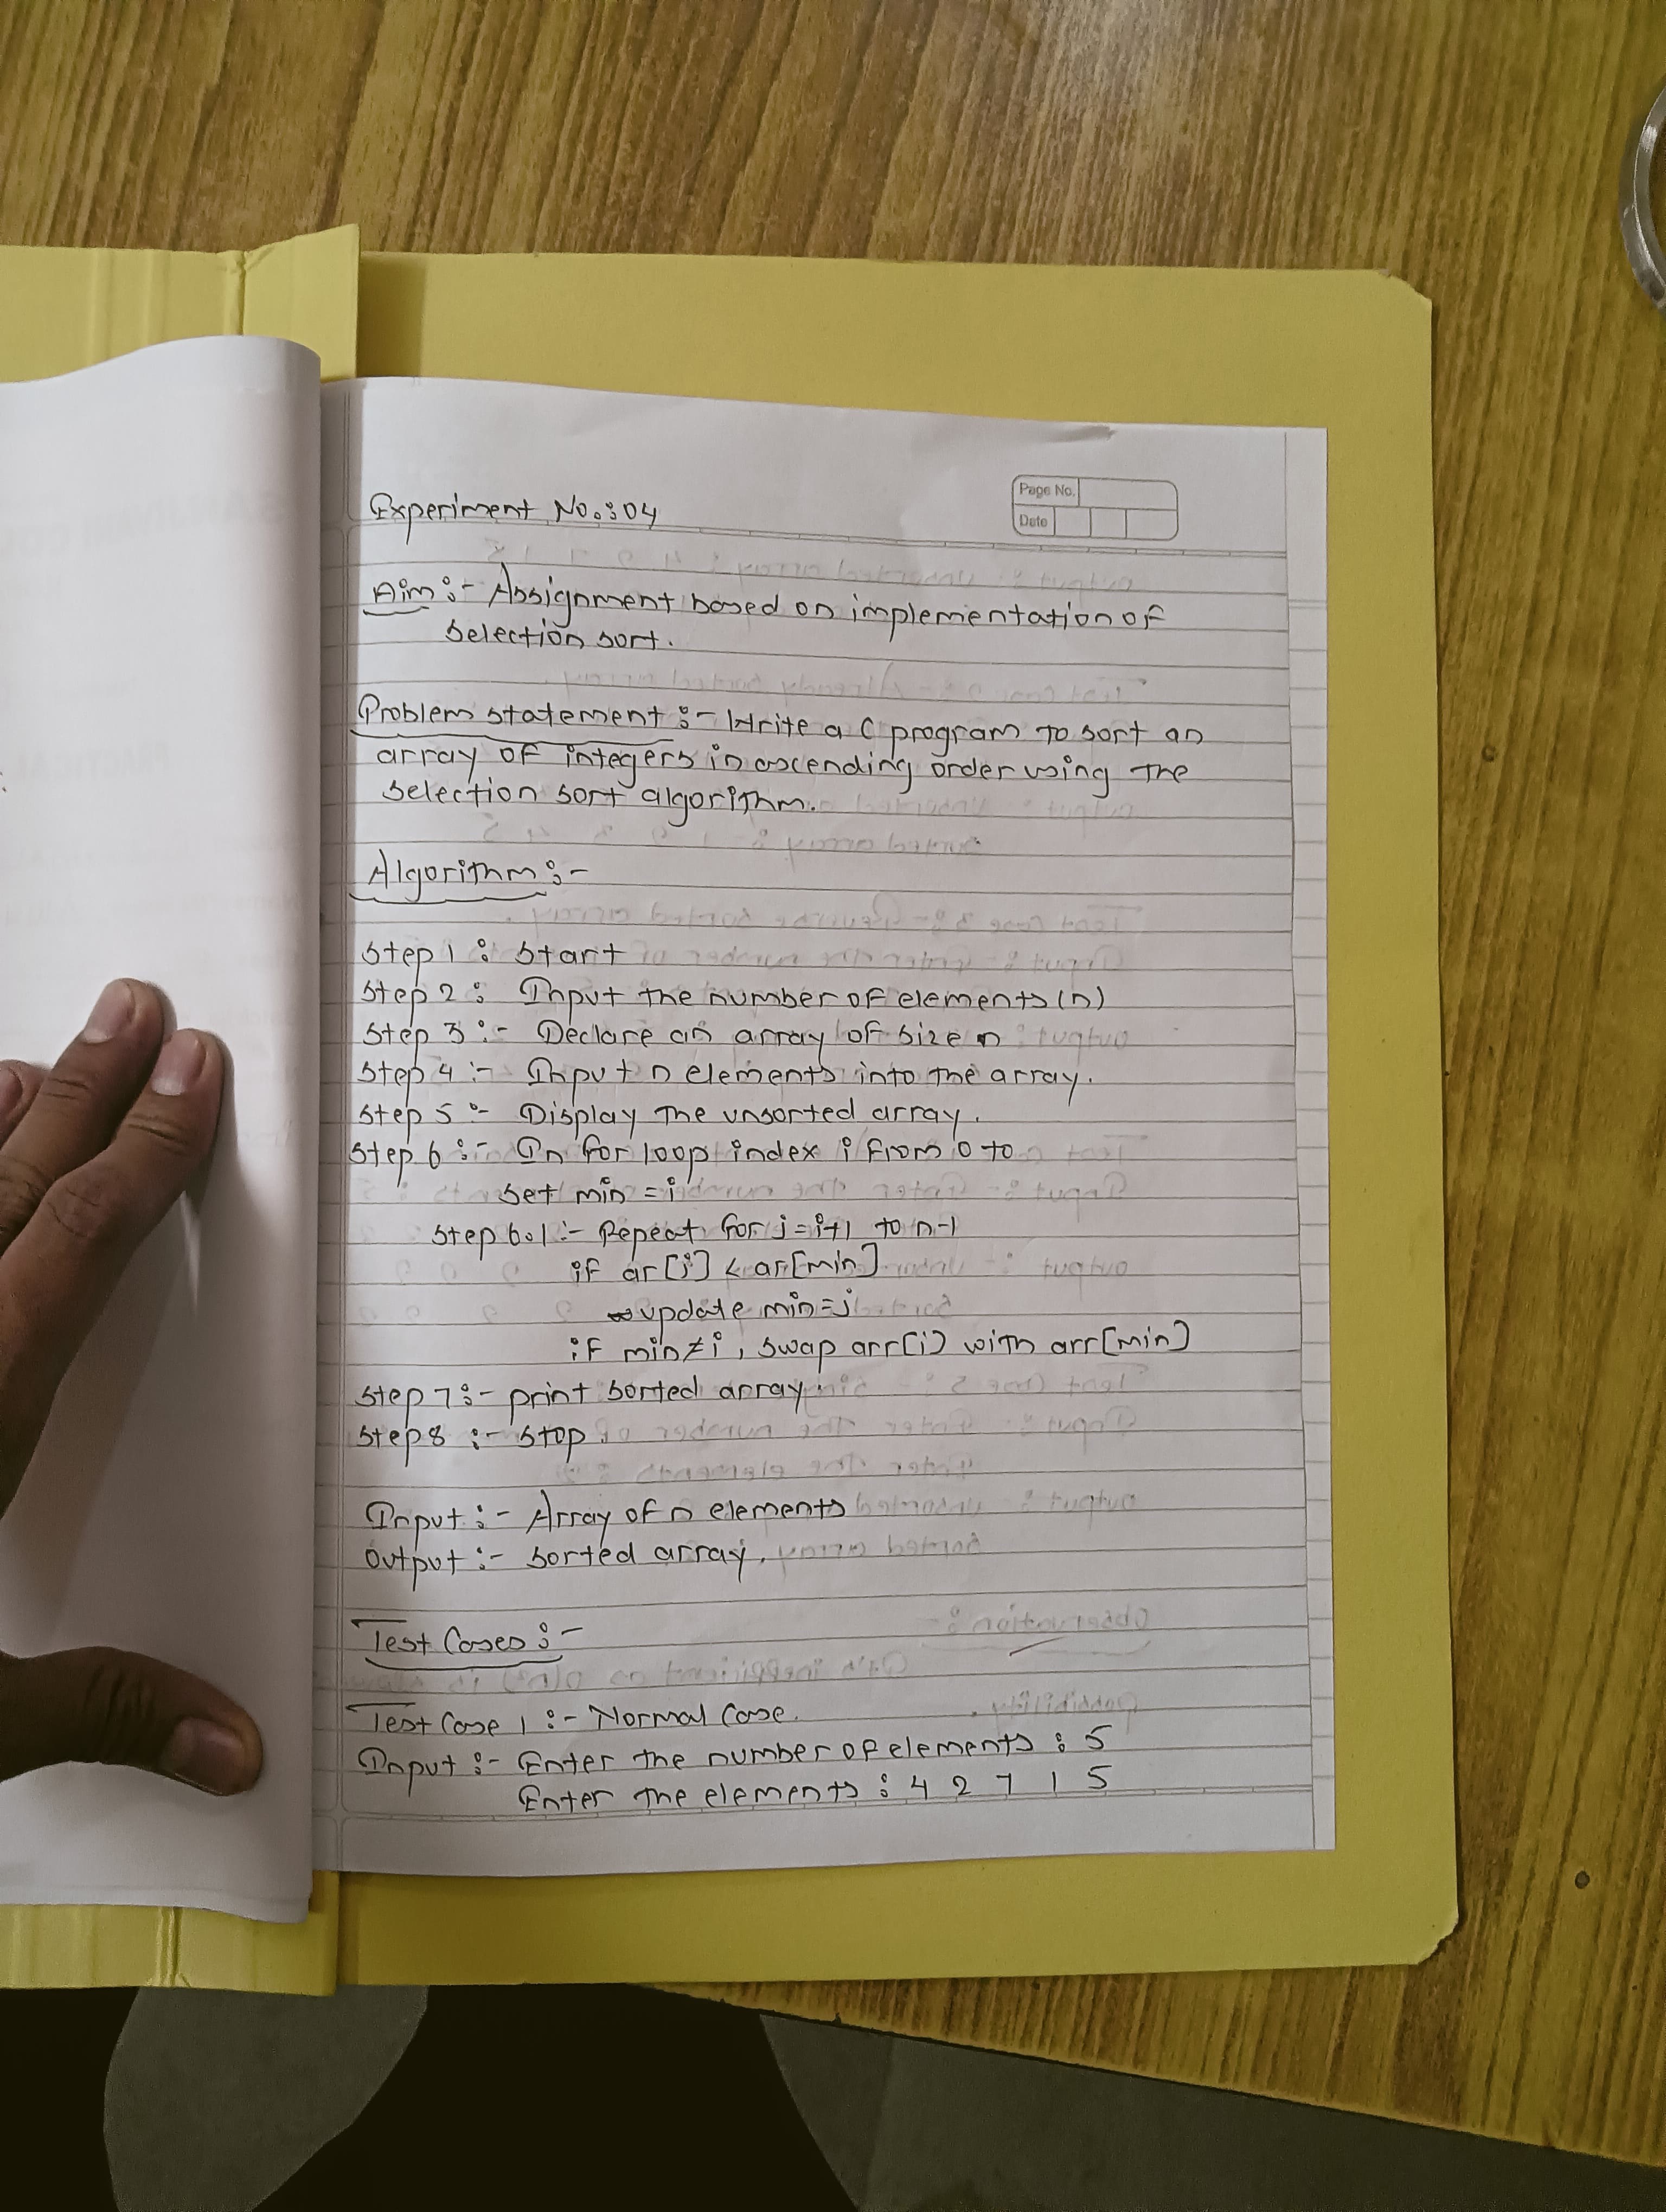 Page No.
Date
Experiment No.:04
Aim:- Assignment based on implementation of
selection sort.
Problem statement:- Write a C program to sort an
array of integers in ascending order using the
selection sort algorithm.
Algorithm:-
Step 1 : Start
Step 2 : Input the number of elements (n)
Step 3 :- Declare an array of size n
Step 4 :- Input n elements into the array.
Step 5 :- Display the unsorted array.
Step 6 :- In for loop index i from 0 to
set min = i
Step 6.1 :- Repeat for j = i+1 to n-1
if ar[j] < ar[min]
update min=j
if min≠i, swap arr[i] with arr[min]
Step 7:- print sorted array.
Step 8 :- Stop.
Input :- Array of n elements
Output :- sorted array.
Test Cases :-
Test Case 1 :- Normal Case.
Input :- Enter the number of elements : 5
Enter the elements : 4 2 7 1 5